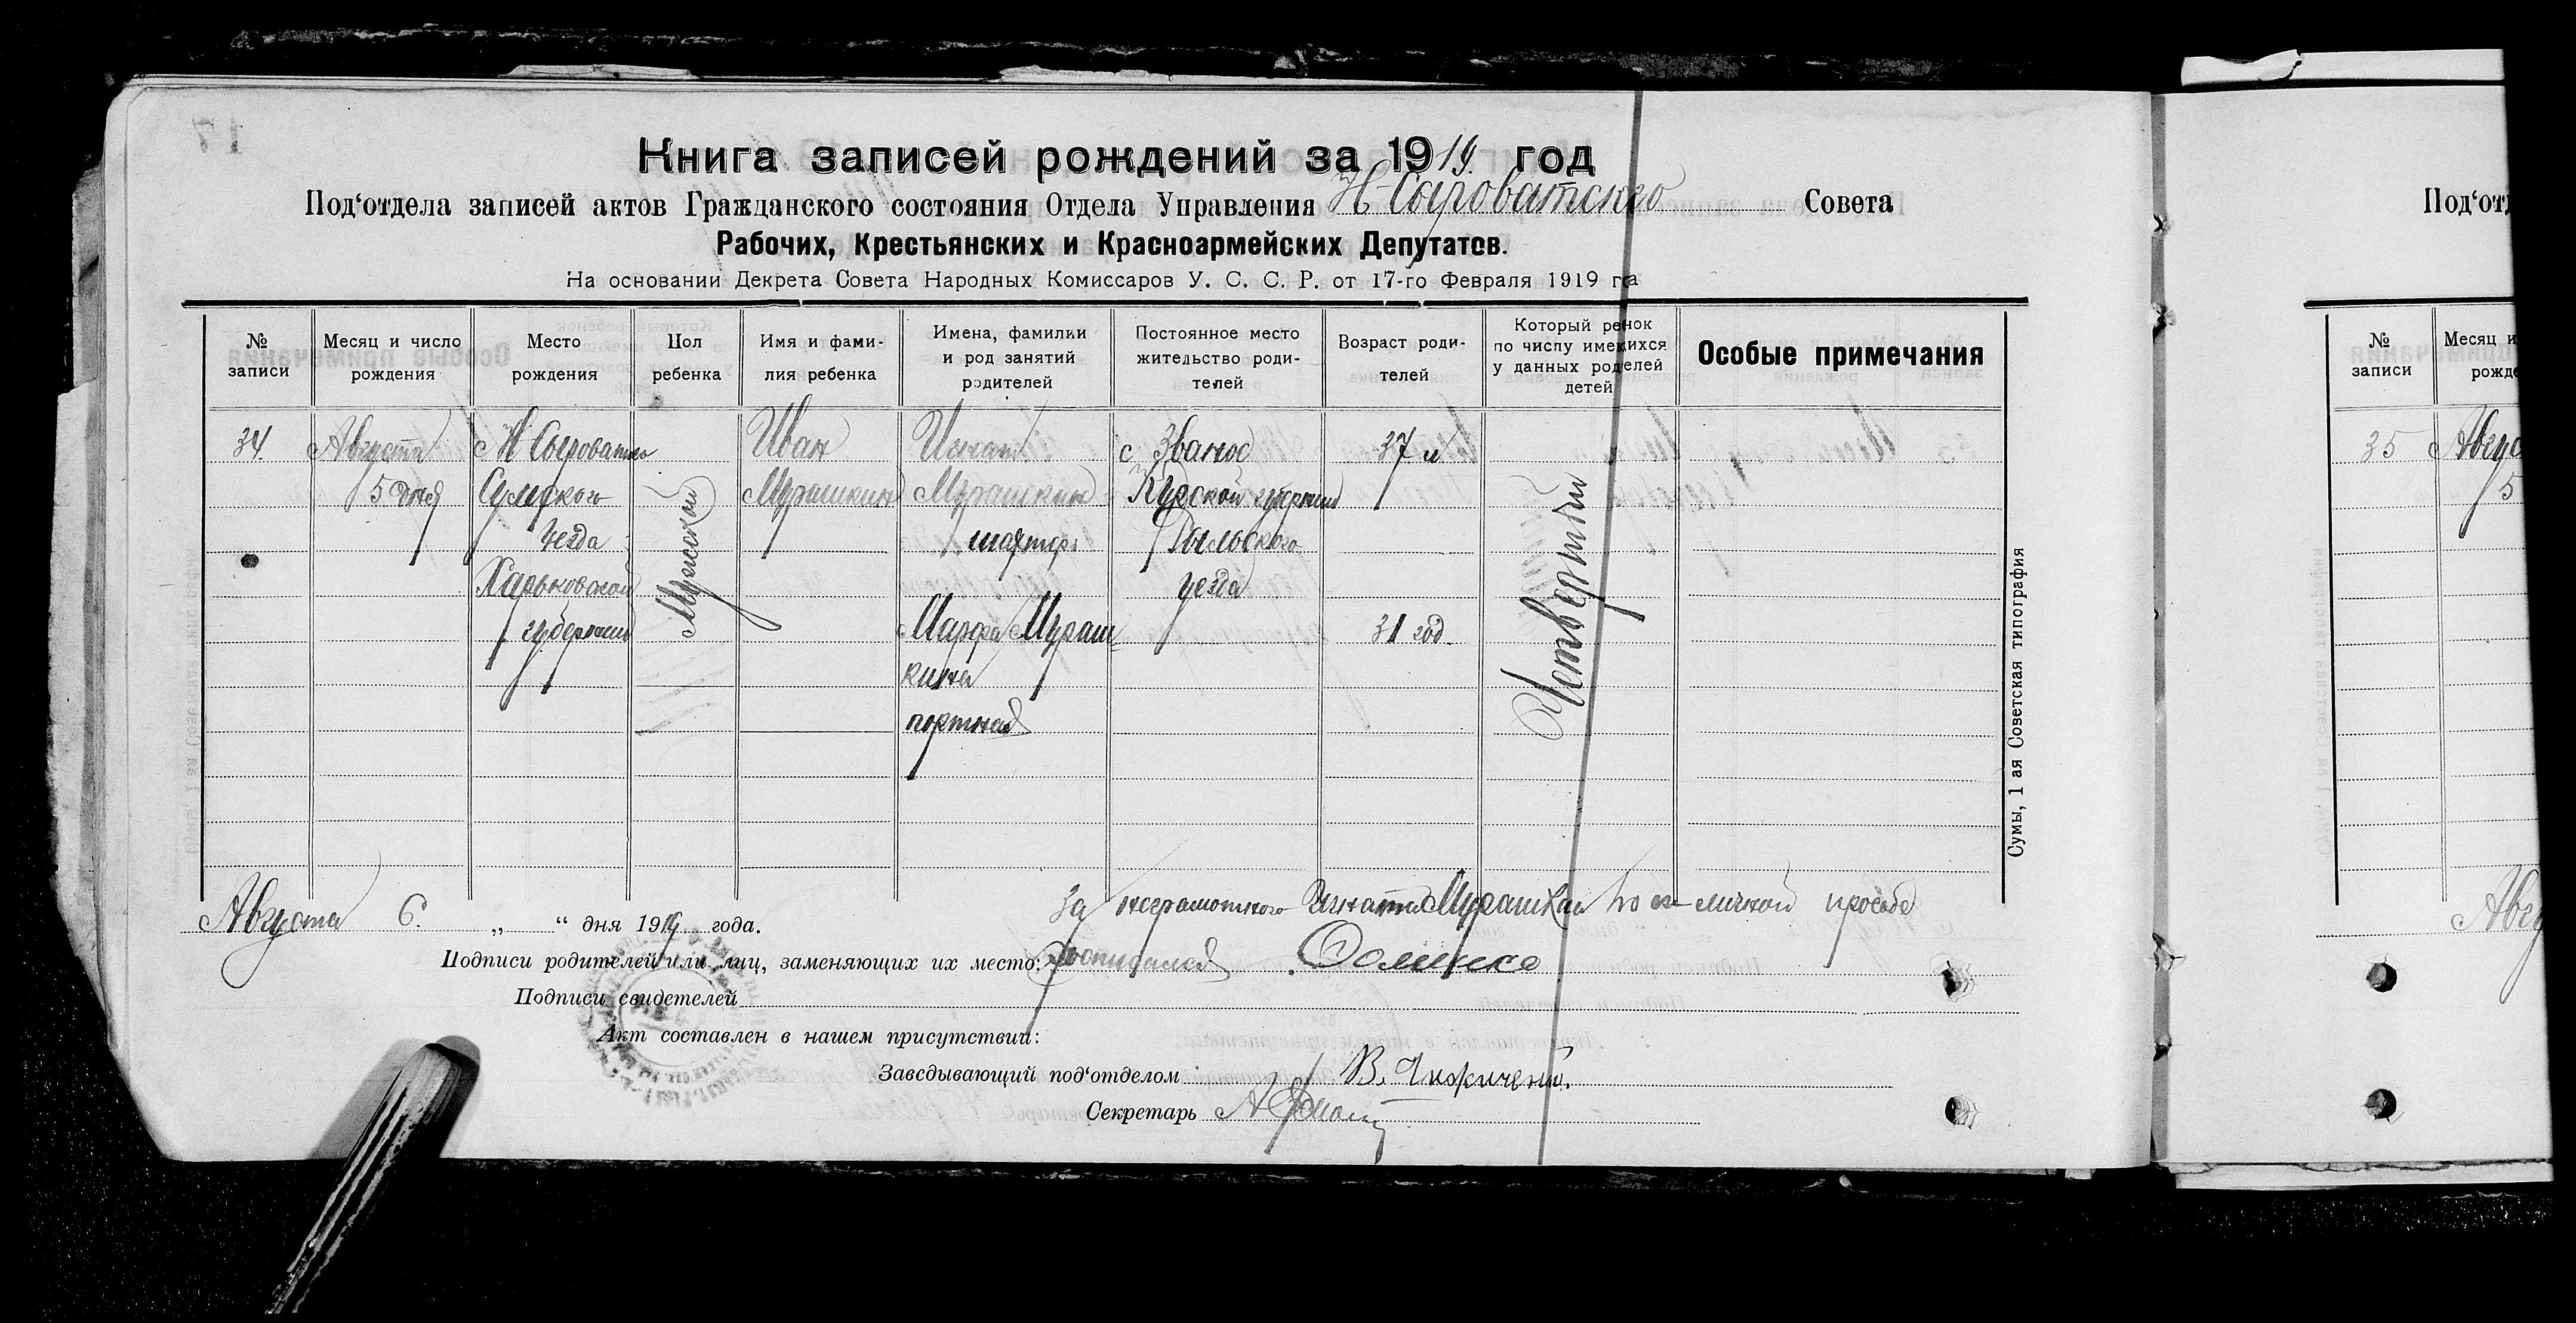 Книга записей рождений за 1919 год
Под‘отдела записей актов Гражданского состояния Отдела Управления Н-Сыроватского Совета
Рабочих, Крестьянских и Красноармейских Депутатов.
На основании Декрета Совета Народных Комиссаров У. С. С. Р. от 17-го Февраля 1919 г
№ записи
Месяц и число рождения
Место рождения
Пол ребенка
Имя и фами-
лия ребенка
Имена, фамилии
и род занятий
родителей
Постоянное место
жительство роди-
телей
Возраст роди-
телей
Который
по числу
у данных
детей
Особые примечания
34
Августа
5 дня
с Н Сыроватка
Сумского
уезда
Харьковской
губернии
Мужской
Иван
Мурашкин
Игнат
Мурашкин
шахтер
Марфа Мураш-
кина
портная
с
Курской губернии
Рыльского
уезда
37 л
31 год
Четвертый
Сумы, 1 ая Советская типография
Августа 6. „ “ дня 1919 года.
За неграмотного Игната по личной просьбе
Подписи родителей или лиц, заменяющих их место:
Подписи свидетелей
Акт составлен в нашем присутствии:
Заведывающий под‘отделом В.
Секретарь А
Под‘от
№ записи
Месяц и
рожде
35
Авгус
5
Авгу